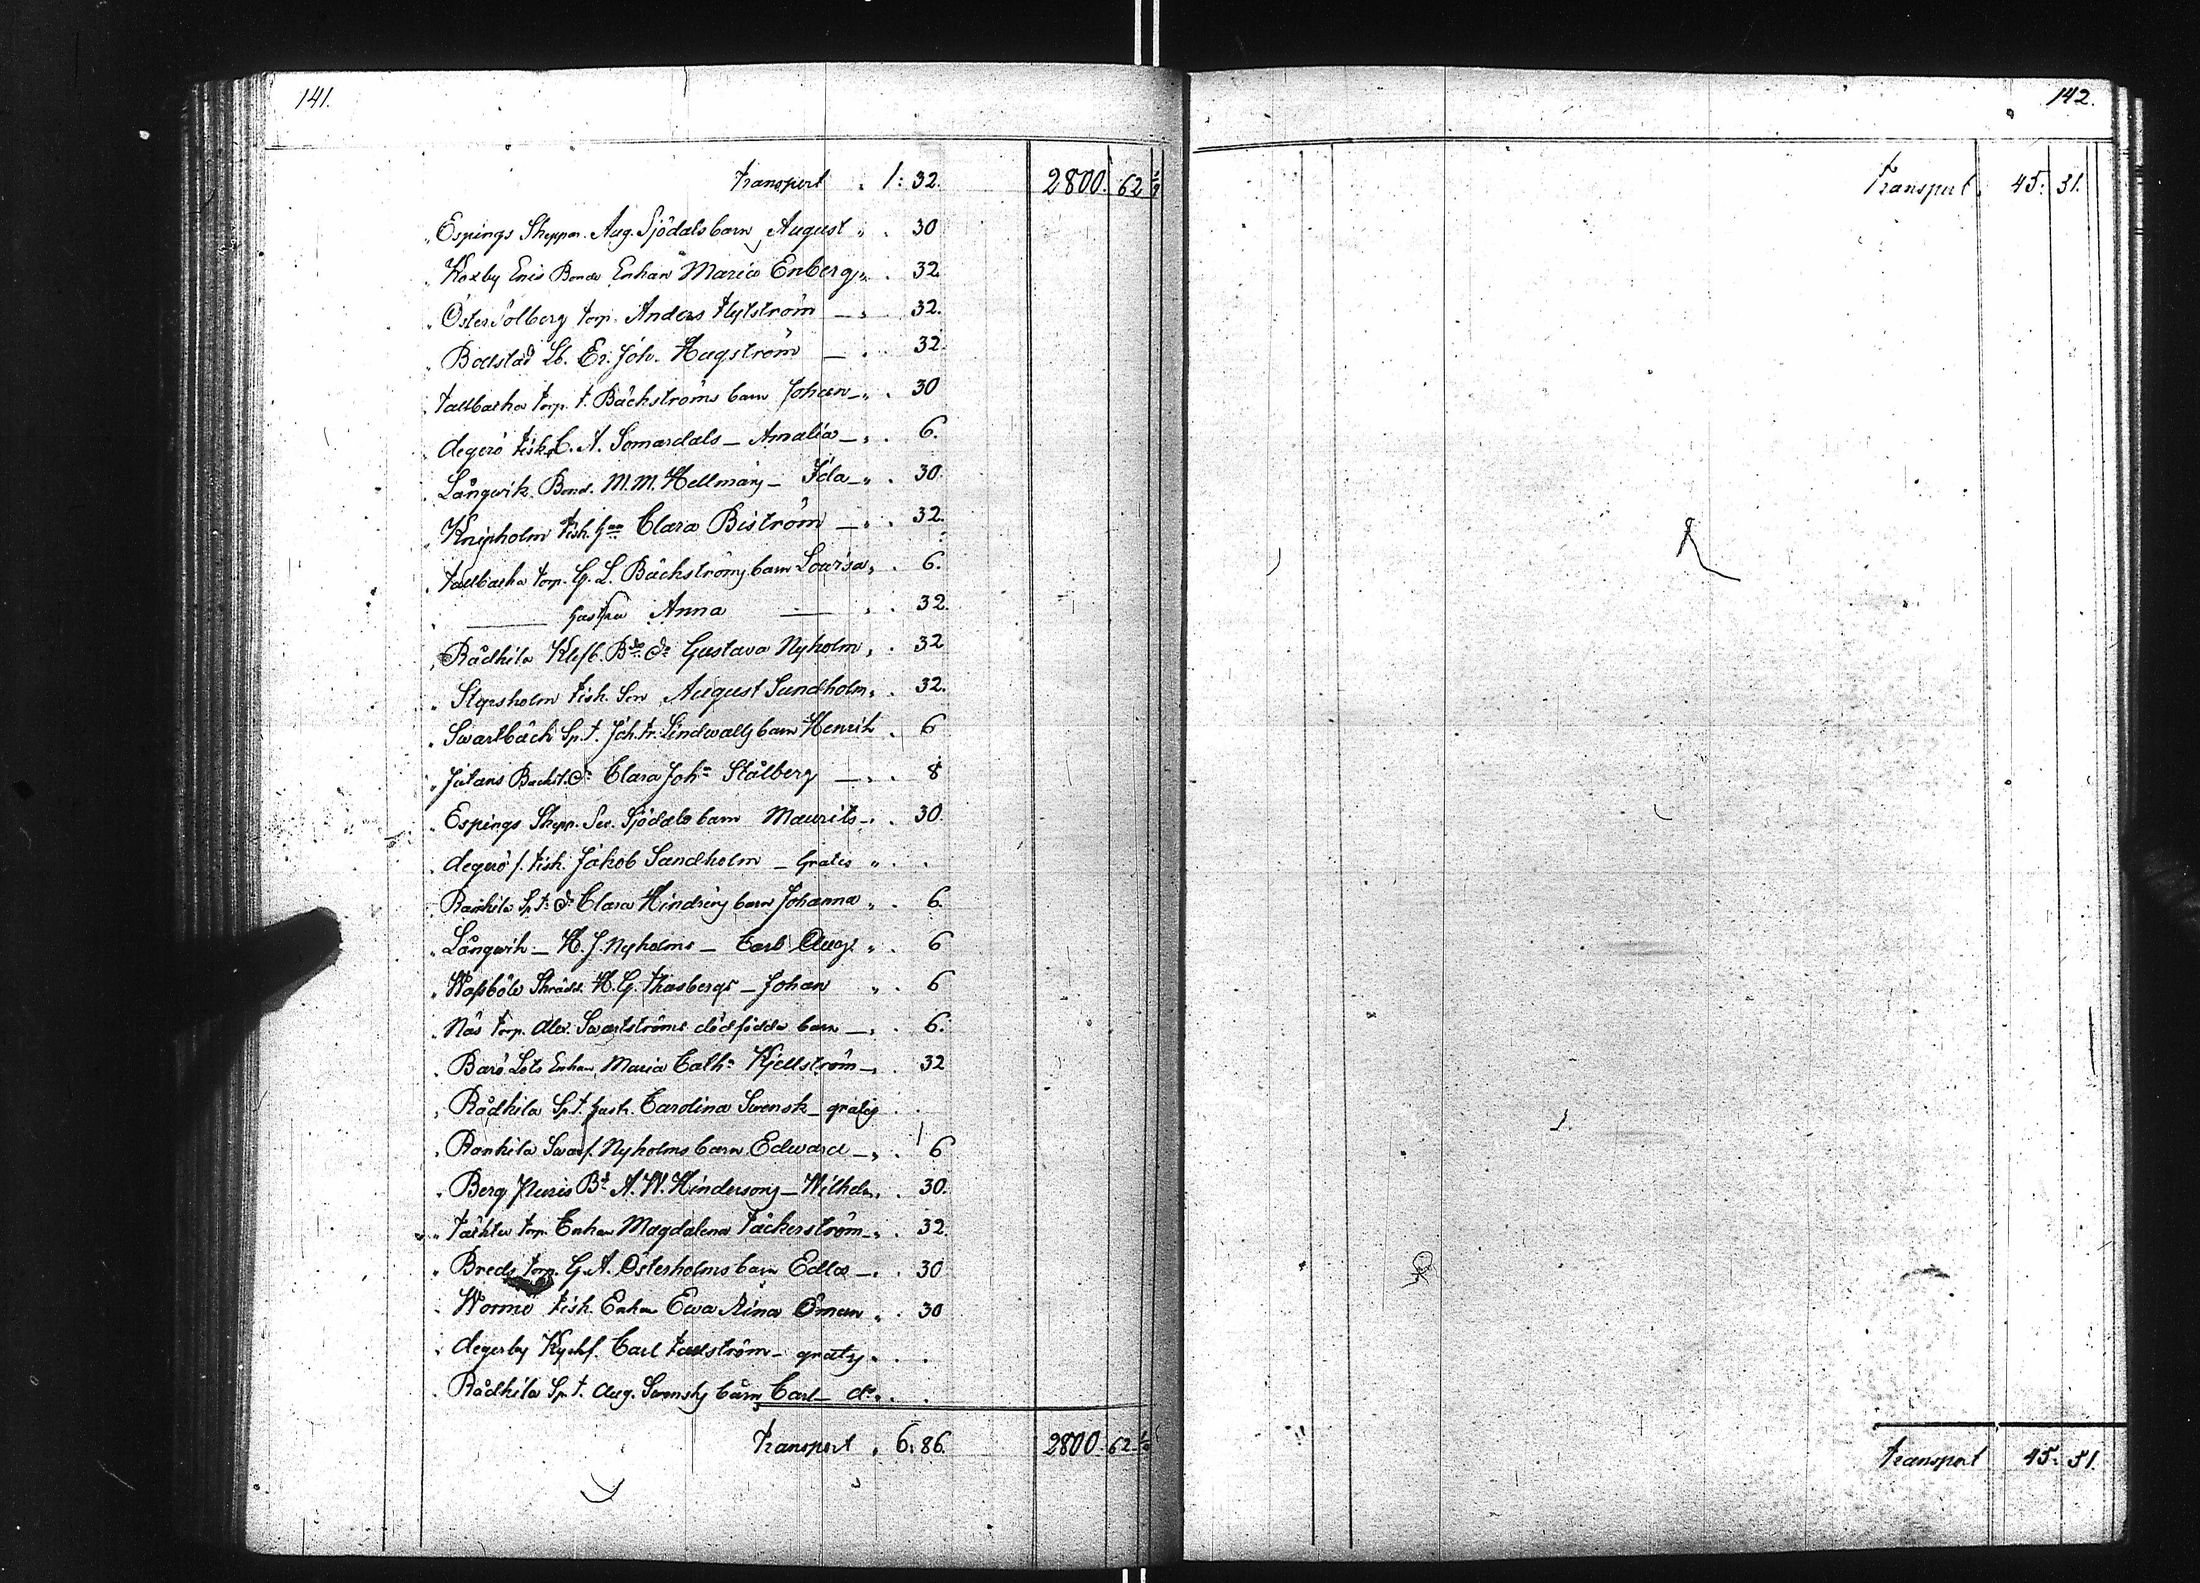 141.
Transport „ 1: 32. 2800. 62 1/2
„ Espings Skeppar. Aug. Sjödals barn August „ . 30
„ Koxby Eris Bonde Enkan Maria Enberg „ . 32
„ Östersolberg torp. Anders Flytström — „ 32.
„ Bolstad Lb. Er. Joh. Hagström — „ 32.
„ Tallbacka torp. F. Bäckströms barn Johan — „ . 30
„ Degerö Fisk. C. A. Somardals — Amalia — „ . 6.
„ Långwik Bond. M. M. Hellmans — Ida — „ . 30.
„ Knipholm Fisk. Hu Clara Biström — „ . 32.
„ Tallbacka torp. G. L. Bäckströms barn Lovisa „ . 6.
„ — hustru Anna — „ . 32.
„ Rådkila Klefb. Bde Dr Gustava Nyholm „ . 32
„ Stensholm Fisk. Son August Sundholm „ . 32.
„ Swartbäck Sp. T. Joh. Fr. Lindwalls barn Henrik . 6
„ Jutans Backst. Dr Clara Joha Stålberg — „ . 8
„ Espings Skepp. Sev. Sjödals barn Maurits — „ . 30.
„ Degerö f. Fisk. Jakob Sandholm — Gratis „ . .
„ Rankila Sp. T. Dr Clara Hindrins barn Johanna „ . 6.
„ Långwik — H. J. Nyholms — Carl Aug. „ . 6
„ Waßböle Skrädd. H. G. Thasbergs — Johan „ . 6
„ Näs torp. Alex. Swartströms dödfödda barn — „ . 6.
„ Barö Lots Enkan Maria Catha Kjellström — „ . 32
„ Rådkila Sp. T. hustr. Carolina Swensk — gratis . .
„ Rankila Swarf. Nyholms barn Edward — „ . 6
„ Berg Puris Bd A. W. Hindersons — Wilhelm . 30.
„ Täckter torp. Enkan Magdalena Täckerström — „ . 32.
„ Breds torp. G. A. Österholms barn Edla — „ . 30
„ Wormö Fisk. Enkan Ewa Rina Öman „ . 30
„ Degerby Kyrkf. Carl Fallström — gratis „ . .
„ Rådkila Sp. T. Aug. Swensks barn Carl — do „ . .
Transport „ 6: 86. 2800. 62 1/2
142.
Transport „ 45: 51.
Transport 45: 51.